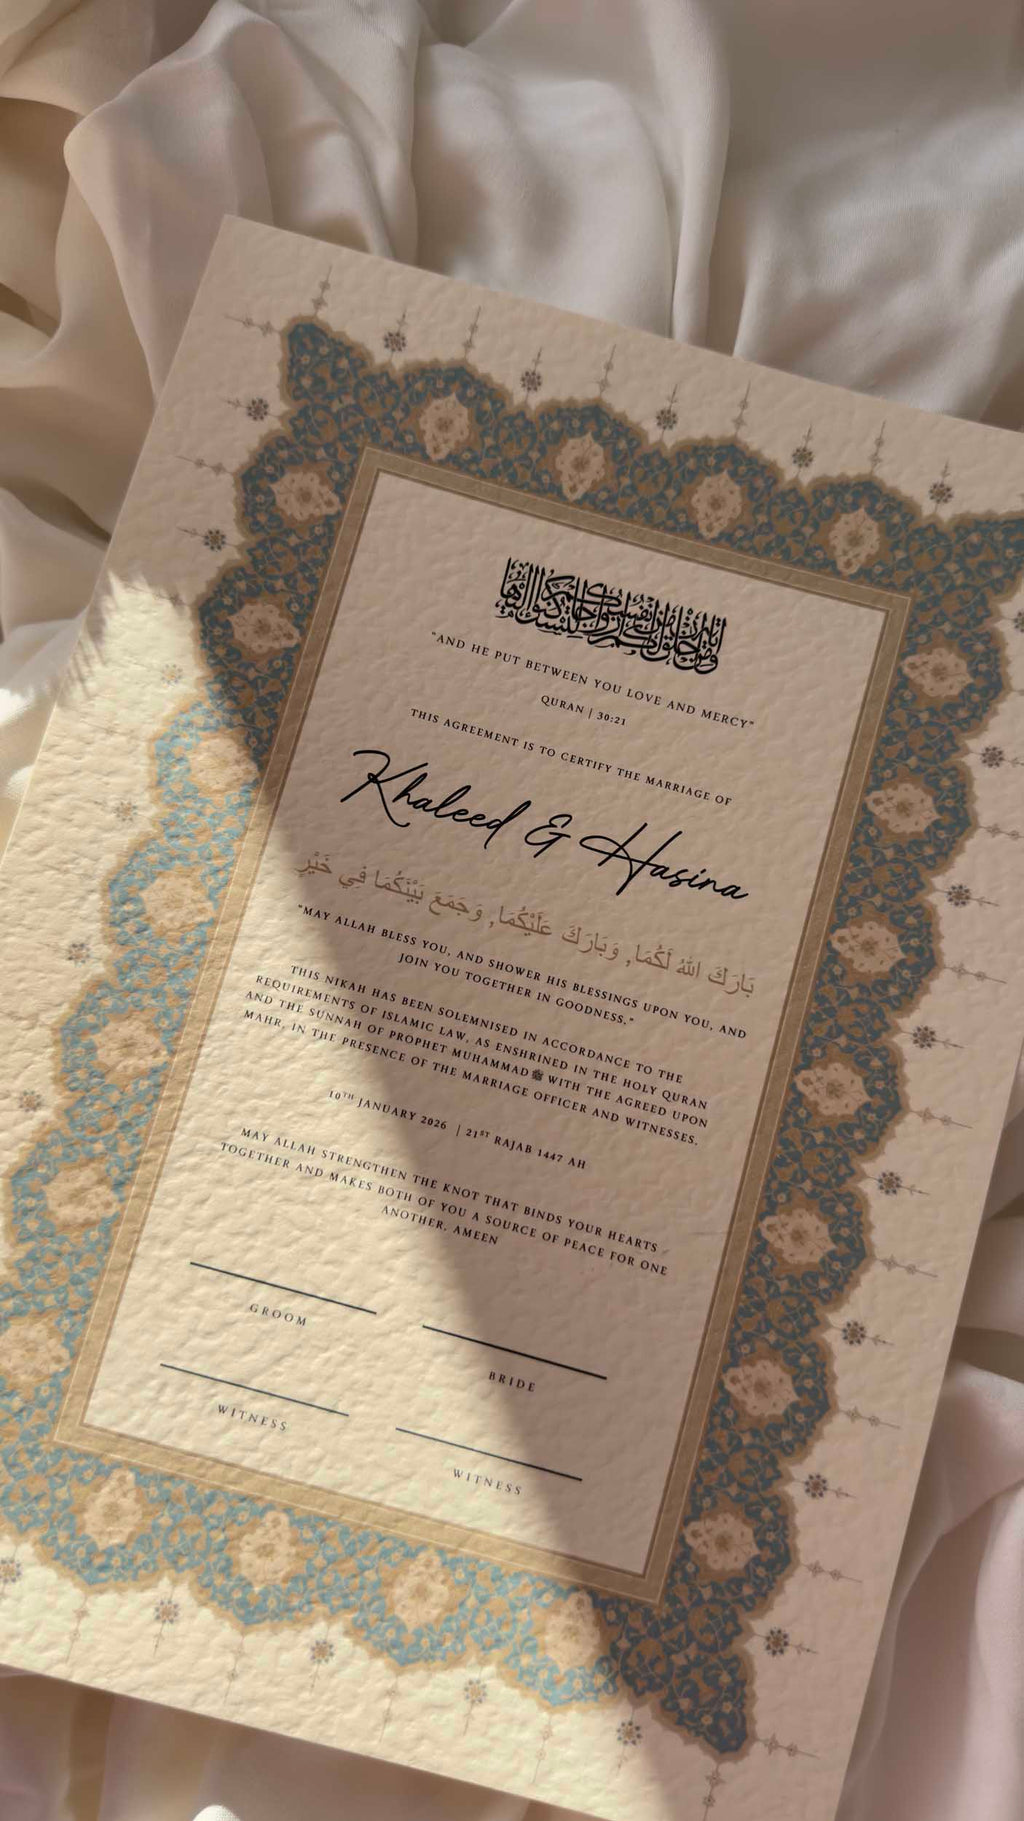 ومن آياته أن خلق لكم من أنفسكم أزواجا لتسكنوا إليها
"AND HE PUT BETWEEN YOU LOVE AND MERCY"
QURAN | 30:21
THIS AGREEMENT IS TO CERTIFY THE MARRIAGE OF
Khaleed & Hasina
بَارَكَ اللهُ لَكُمَا, وَبَارَكَ عَلَيْكُمَا, وَجَمَعَ بَيْنَكُمَا فِي خَيْرٍ
"MAY ALLAH BLESS YOU, AND SHOWER HIS BLESSINGS UPON YOU, AND
JOIN YOU TOGETHER IN GOODNESS."
THIS NIKAH HAS BEEN SOLEMNISED IN ACCORDANCE TO THE
REQUIREMENTS OF ISLAMIC LAW, AS ENSHRINED IN THE HOLY QURAN
AND THE SUNNAH OF PROPHET MUHAMMAD ﷺ WITH THE AGREED UPON
MAHR, IN THE PRESENCE OF THE MARRIAGE OFFICER AND WITNESSES.
10TH JANUARY 2026 | 21ST RAJAB 1447 AH
MAY ALLAH STRENGTHEN THE KNOT THAT BINDS YOUR HEARTS
TOGETHER AND MAKES BOTH OF YOU A SOURCE OF PEACE FOR ONE
ANOTHER, AMEEN
GROOM
BRIDE
WITNESS
WITNESS